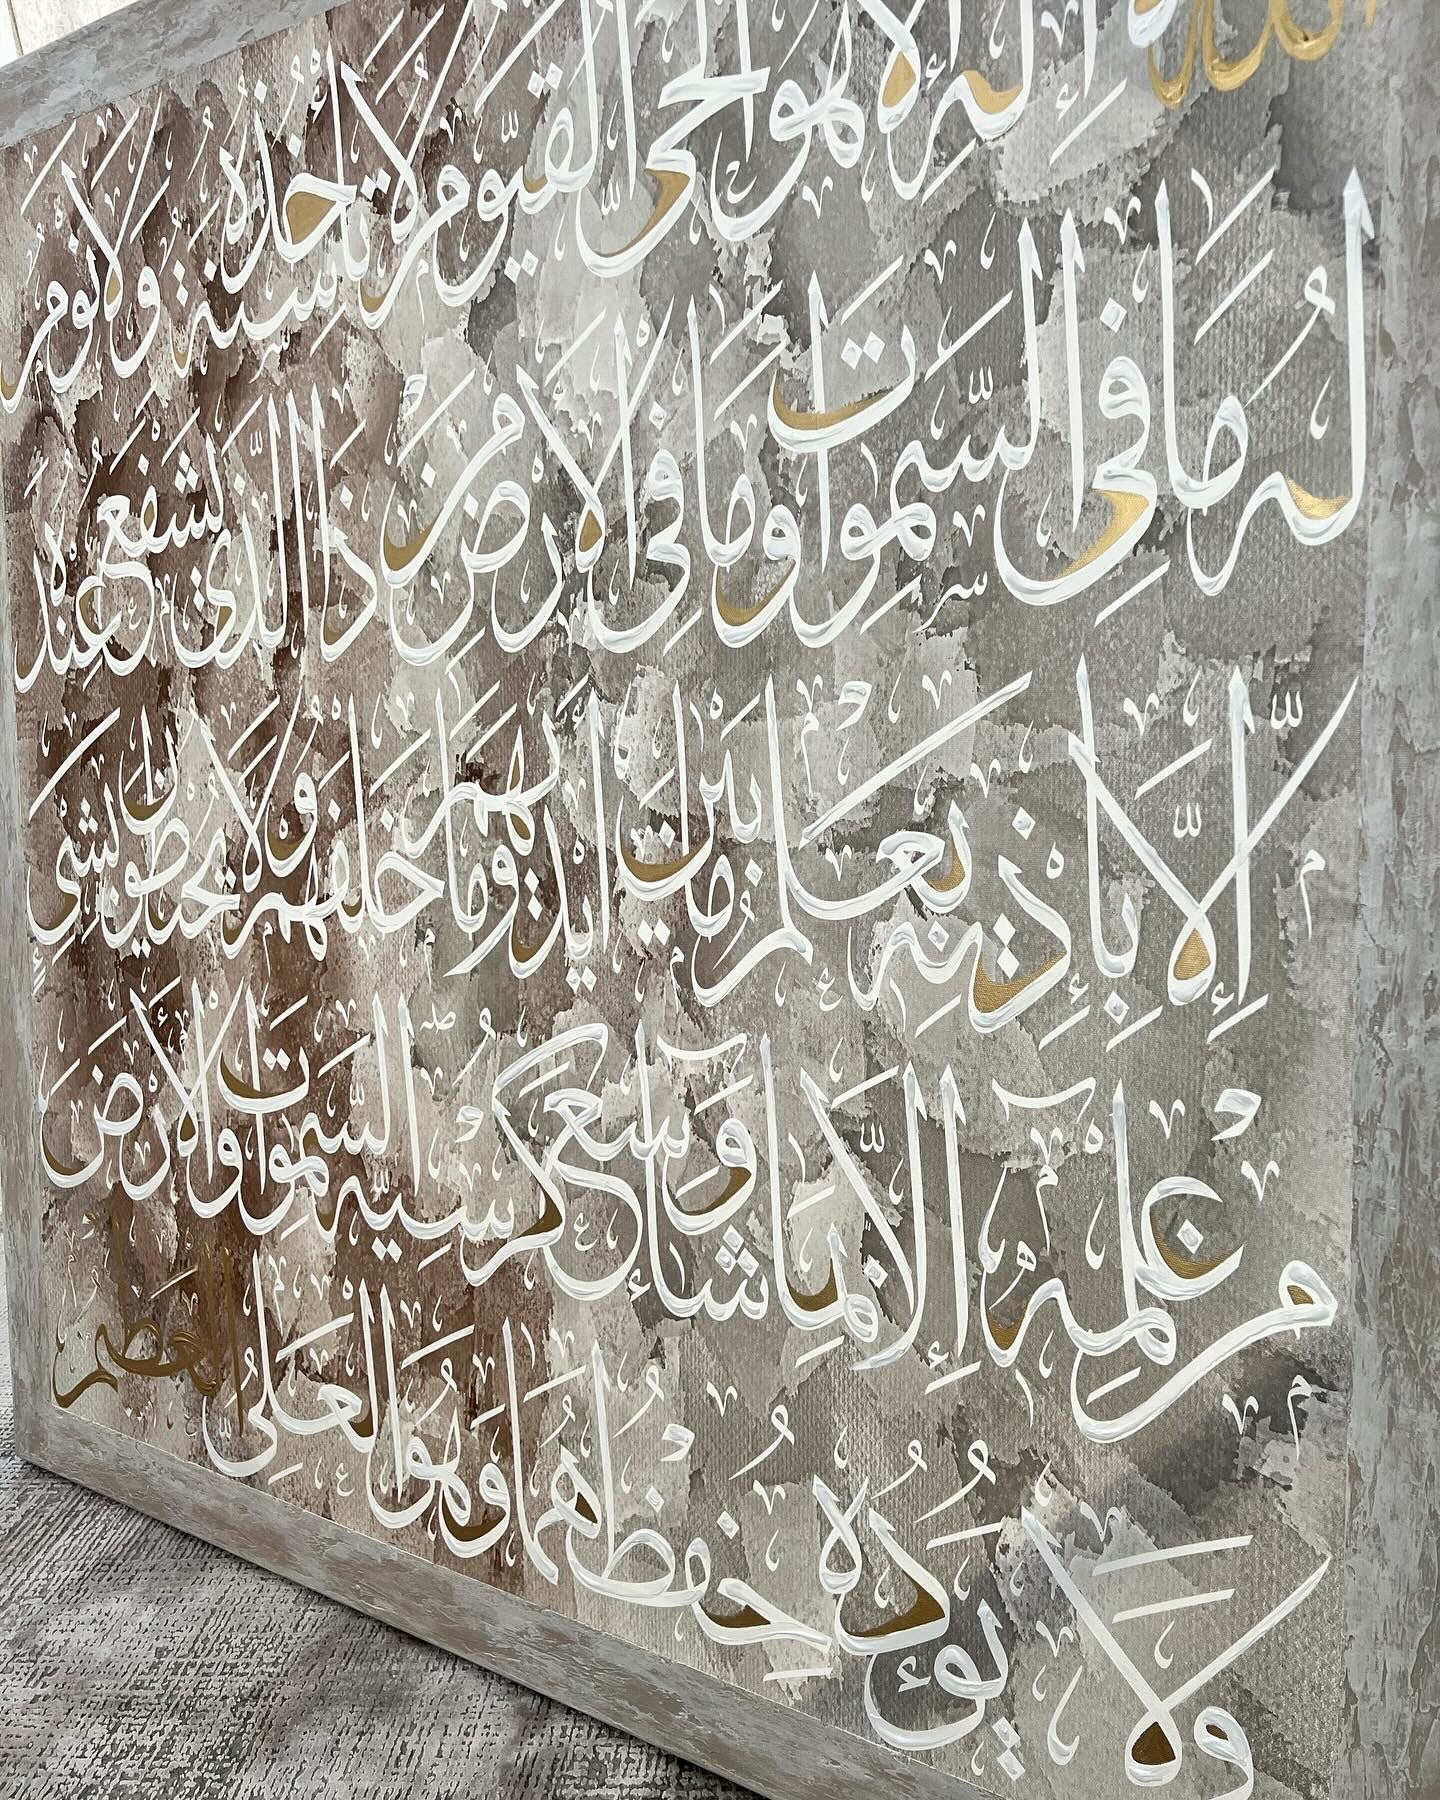 الله لَا إِلٰهَ إِلَّا هُوَ الْحَيُّ الْقَيُّومُ لَا تَأْخُذُهُ سِنَةٌ وَلَا نَوْمٌ
لَهُ مَا فِي السَّمٰوَاتِ وَمَا فِي الْاَرْضِ مَنْ ذَا الَّذِي يَشْفَعُ عِنْدَهُ
إِلَّا بِإِذْنِهِ يَعْلَمُ مَا بَيْنَ اَيْدِيهِمْ وَمَا خَلْفَهُمْ وَلَا يُحِيطُونَ بِشَيْءٍ
مِنْ عِلْمِهِ إِلَّا بِمَا شَاءَ وَسِعَ كُرْسِيُّهُ السَّمٰوَاتِ وَالْاَرْضَ
وَلَا يَؤُدُهُ حِفْظُهُمَا وَهُوَ الْعَلِيُّ الْعَظِيمُ